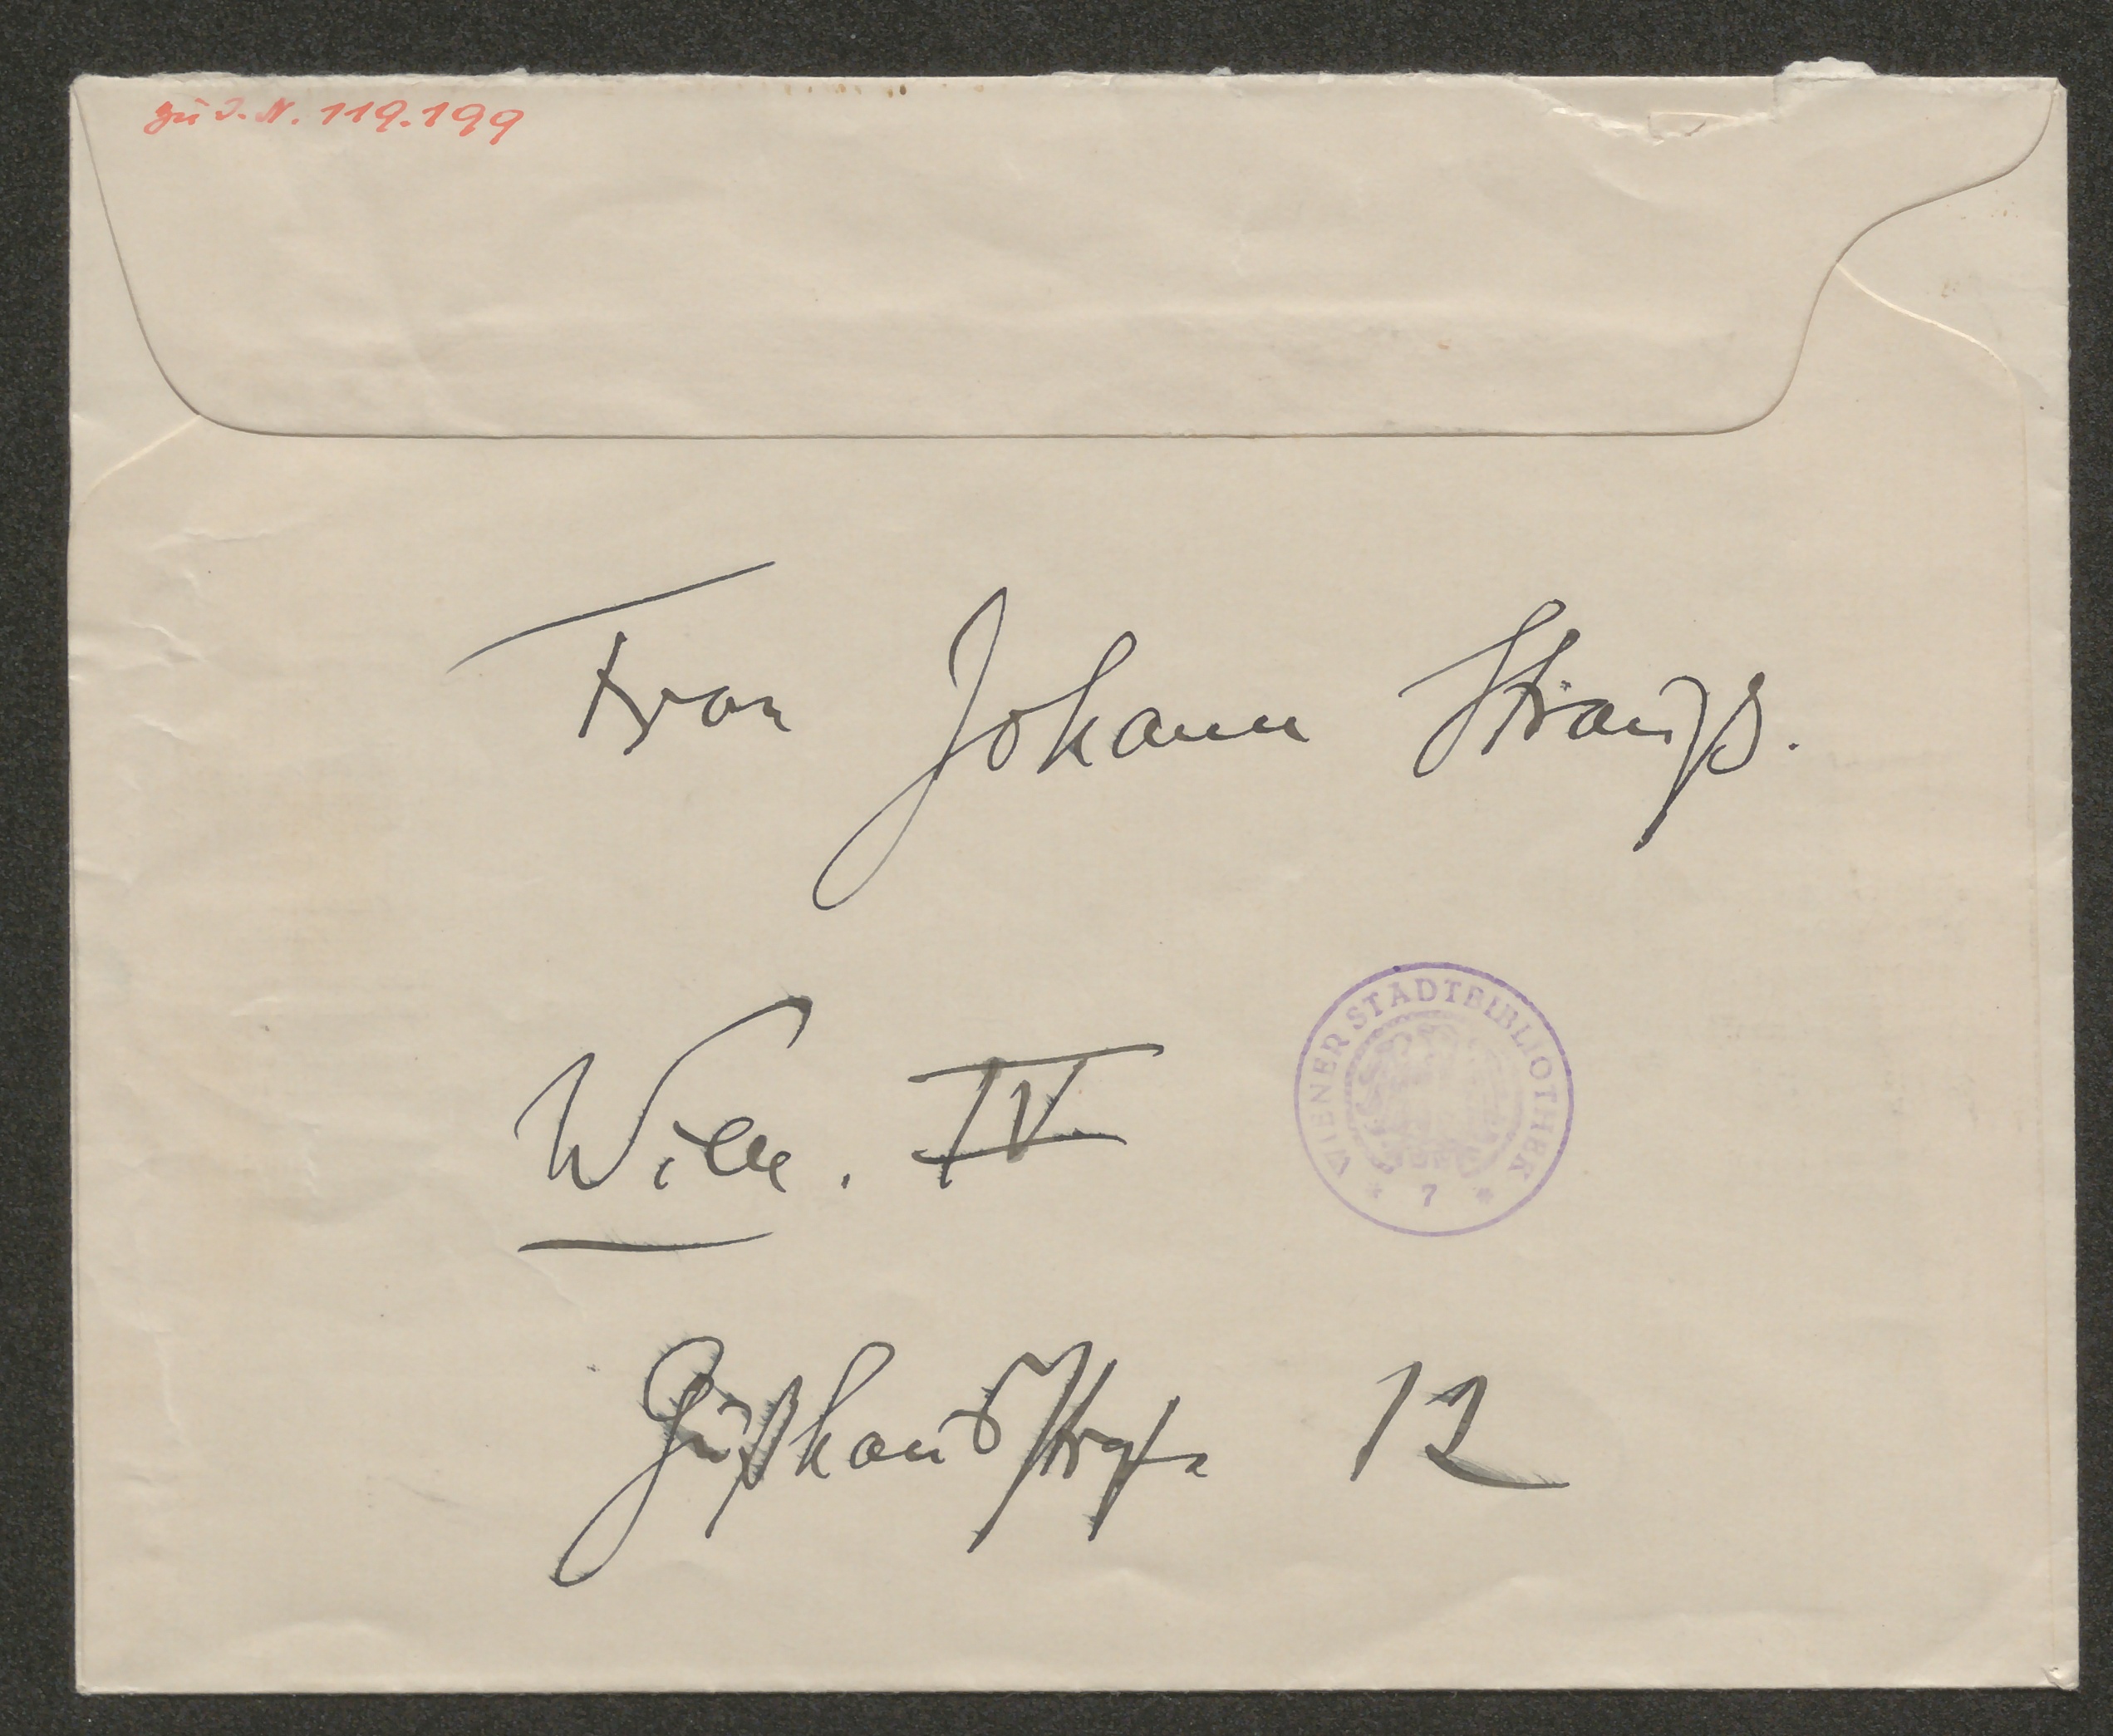 zu I. N. 119.199
Frau Johann Strauß.
Wien. IV
WIENER STADTBIBLIOTHEK
* 7 *
Gußhausstraße 12